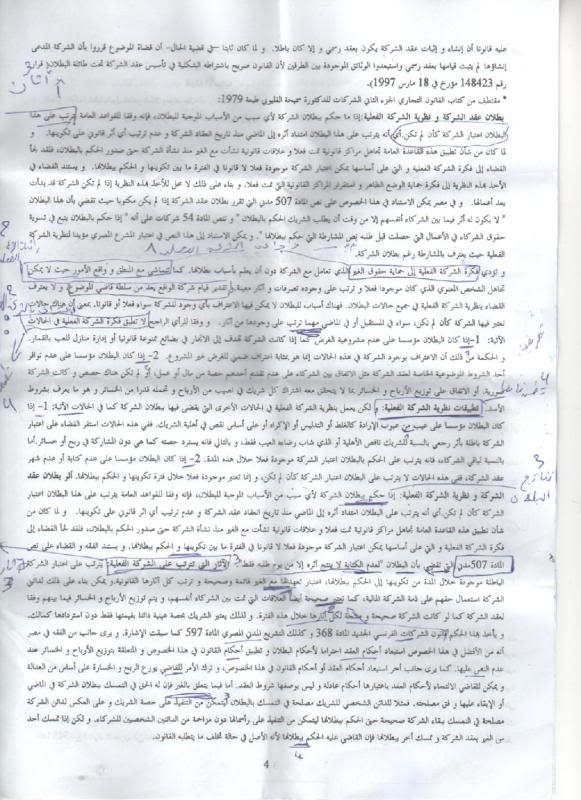 عليه قانونا أن إنشاء و إثبات عقد الشركة يكون بعقد رسمي و إلا كان باطلا. و لما كان ثابتا –في قضية الحال– أن قضاة الموضوع قرروا بأن الشركة المدعى
إنشاؤها لم يثبت قيامها بعقد رسمي واستبعدوا الوثائق الموجودة بين الطرفين لأن القانون صريح باشتراطه الشكلية في تأسيس عقد الشركة تحت طائلة البطلان( قرار
رقم 148423 مؤرخ في 18 مارس 1997).
* مقتطف من كتاب القانون التجاري الجزء الثاني الشركات للدكتورة سميحة القليوبي طبعة 1979:
بطلان عقد الشركة و نظرية الشركة الفعلية: إذا ما حكم ببطلان الشركة لأي سبب من الأسباب الموجبة للبطلان، فإنه وفقا للقواعد العامة يترتب على هذا
البطلان اعتبار الشركة كأن لم تكن، أي أنه يترتب على هذا البطلان امتداد أثره إلى الماضي منذ تاريخ انعقاد الشركة و عدم ترتيب أي أثر قانوني على تكوينها. و
لما كان من شأن تطبيق هذه القاعدة العامة تجاهل مراكز قانونية تمت فعلا و علاقات قانونية نشأت مع الغير منذ نشأة الشركة حتى صدور الحكم بالبطلان، فقد لجأ
القضاء إلى فكرة الشركة الفعلية و التي على أساسها يمكن اعتبار الشركة موجودة فعلا لا قانونا في الفترة ما بين تكوينها و الحكم ببطلانها. و يستند القضاء في
الأخذ بهذه النظرية إلى فكرة حماية الوضع الظاهر و استقرار المراكز القانونية التي تمت فعلا. و بناء على ذلك لا محل للأخذ بهذه النظرية إذا لم تكن الشركة قد بدأت
بعد أعمالها. و في مصر يمكن الاستناد في هذا الخصوص على نص المادة 507 مدني التي تقرر بطلان عقد الشركة إذا لم يكن مكتوبا حيث تقضي بأن هذا البطلان
" لا يكون له أثر فيما بين الشركاء أنفسهم إلا من وقت أن يطلب الشريك الحكم بالبطلان " و تنص المادة 54 شركات على أنه " إذا حكم بالبطلان يتبع في تسوية
حقوق الشركاء في الأعمال التي حصلت قبل طلبه نص المشارطة التي حكم ببطلانها ". و يمكن الاستناد إلى هذا النص في اعتبار المشرع المصري مؤيدا لنظرية الشركة
الفعلية حيث يعترف بالمشارطة رغم بطلان الشركة.
و تؤدي فكرة الشركة الفعلية إلى حماية حقوق الغير الذي تعامل مع الشركة دون أن يعلم بأسباب بطلانها. كما تتماشى مع المنطق و واقع الأمور حيث لا يمكن
تجاهل الشخص المعنوي الذي كان موجودا فعلا و ترتب على وجوده تصرفات و آثار معينة. و تقدير قيام شركة الواقع يعد من سلطة قاضي الموضوع و لا يعترف
القضاء بنظرية الشركة الفعلية في جميع حالات البطلان. فهناك أسباب للبطلان لا يمكن فيها الاعتراف بأي وجود للشركة سواء فعلا أو قانونا. بمعنى أن هناك حالات
تعتبر فيها الشركة كأن لم تكن، سواء في المستقبل أو في الماضي مهما ترتب على وجودها من آثار. و وفقا للرأي الراجح لا تطبق فكرة الشركة الفعلية في الحالات
الآتية: 1- إذا كان البطلان مؤسسا على عدم مشروعية الغرض كما إذا كانت الشركة تهدف إلى الاتجار في بضائع ممنوعة قانونيا أو إدارة منازل للعب بالقمار.
و الحكمة من ذلك أن الاعتراف بوجود الشركة في هذه الحالات إنما هو بمثابة اعتراف ضمني للغرض غير المشروع. 2- إذا كان البطلان مؤسسا على عدم توافر
أحد الشروط الموضوعية الخاصة لعقد الشركة مثل الاتفاق بين الشركاء على عدم تقديم أحدهم حصة من مال أو عمل، أو لم تكن هناك حصص و كانت الشركة
صورية. أو الاتفاق على توزيع الأرباح و الخسائر بما لا يتحقق معه اشتراك كل شريك في نصيب من الأرباح و تحمله قدرا من الخسائر و هو ما يعرف بشرط
الأسد. تطبيقات نظرية الشركة الفعلية: و لكن يعمل بنظرية الشركة الفعلية في الحالات الأخرى التي يقضى فيها ببطلان الشركة كما في الحالات الآتية: 1- إذا
كان البطلان مؤسسا على عيب من عيوب الإرادة كالغلط أو التدليس أو الإكراه أو على أساس نقص في أهلية الشريك. ففي هذه الحالات استقر القضاء على اعتبار
الشركة باطلة بأثر رجعي بالنسبة للشريك ناقص الأهلية أو الذي شاب رضاءه العيب فقط، و بالتالي فإنه يسترد حصته كما هي دون المشاركة في ربح أو خسائر. أما
بالنسبة لباقي الشركاء، فإنه يترتب على الحكم بالبطلان اعتبار الشركة موجودة فعلا خلال هذه المدة. 2- إذا كان البطلان مؤسسا على عدم كتابة أو عدم شهر
عقد الشركة، ففي هذه الحالات لا يترتب على البطلان اعتبار الشركة كأن لم تكن، و إنما تعتبر موجودة فعلا خلال فترة تكوينها و الحكم ببطلانها. أثر بطلان عقد
الشركة و نظرية الشركة الفعلية: إذا حكم ببطلان الشركة لأي سبب من الأسباب الموجبة للبطلان، فإنه وفقا للقواعد العامة يترتب على هذا البطلان اعتبار
الشركة كأن لم تكن، أي أنه يترتب على هذا البطلان امتداد أثره إلى الماضي منذ تاريخ انعقاد الشركة و عدم ترتيب أي أثر قانوني على تكوينها. و لما كان من
شأن تطبيق هذه القاعدة العامة تجاهل مراكز قانونية تمت فعلا و علاقات قانونية نشأت مع الغير منذ نشأة الشركة حتى صدور الحكم بالبطلان، فقد لجأ القضاء إلى
فكرة الشركة الفعلية و التي على أساسها يمكن اعتبار الشركة موجودة فعلا لا قانونا في الفترة ما بين تكوينها و الحكم ببطلانها. و يستند الفقه و القضاء على نص
المادة 507 مدني التي تقضي بأن البطلان لعدم الكتابة لا ينتج أثره إلا من يوم طلبه فقط. الآثار التي تترتب على الشركة الفعلية: يترتب على اعتبار الشركة
الباطلة موجودة خلال المدة من تكوينها إلى الحكم ببطلانها، اعتبار تعهداتها مع الغير قائمة وصحيحة و ترتب كل آثارها القانونية. و يمكن بناء على ذلك لدائني
الشركة استعمال حقهم على ذمة الشركة المالية، كما تعتبر صحيحة أيضا العلاقات التي تمت بين الشركاء أنفسهم، و يتم توزيع الأرباح و الخسائر فيما بينهم وفقا
لعقد الشركة كما لو كانت الشركة صحيحة و منتجة لكل آثارها خلال هذه الفترة. و لذلك يعتبر الشريك بحصة عينية دائنا بقيمتها فقط دون استردادها كمالك.
و يأخذ بهذا الحكم قانون الشركات الفرنسي الجديد المادة 368 و كذلك التشريع المدني المصري المادة 597 كما سبقت الإشارة. و يرى جانب من الفقه في مصر
أنه من الأفضل في هذا الخصوص استبعاد أحكام العقد احتراما لأحكام البطلان و تطبيق أحكام القانون في هذا الخصوص و المتعلقة بتوزيع الأرباح و الخسائر عند
عدم النص عليها. كما يرى جانب آخر استبعاد أحكام العقد أو أحكام القانون في هذا الخصوص، و ترك الأمر للقاضي يوزع الربح و الخسارة على أساس من العدالة
و يمكن للقاضي الالتجاء لأحكام العقد باعتبارها أحكام عادلة و ليس بوصفها شروط العقد. أما فيما يتعلق بالغير فإن له الحق في التمسك ببطلان الشركة في الماضي
أو الإبقاء عليها و فق مصلحته. فمثلا للدائن الشخصي للشريك مصلحة في التمسك بالبطلان ليتمكن من التنفيذ على حصة الشريك و على العكس لدائن الشركة
مصلحة في التمسك ببقاء الشركة صحيحة حتى الحكم ببطلانها ليتمكن من التنفيذ على رأسمالها دون مزاحمة من الدائنين الشخصيين للشركاء. و لكن إذا تمسك أحد
من الغير بعقد الشركة و تمسك آخر ببطلانها فإن القاضي عليه الحكم ببطلانها لأنه الأصل في حالة تخلف ما يتطلبه القانون.
4